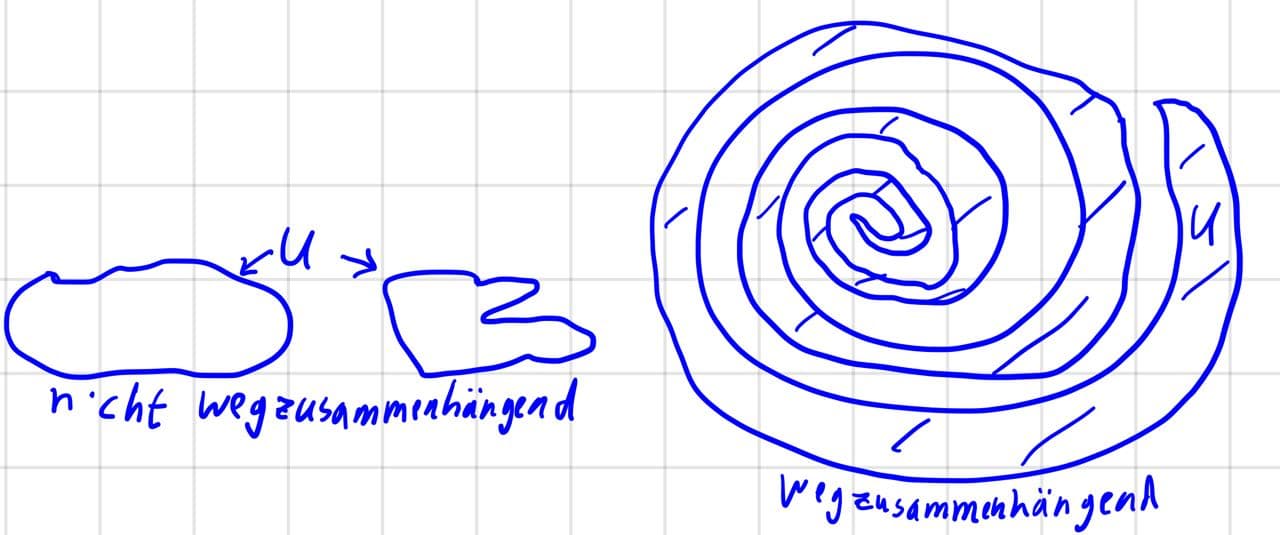 U
nicht wegzusammenhängend
U
wegzusammenhängend